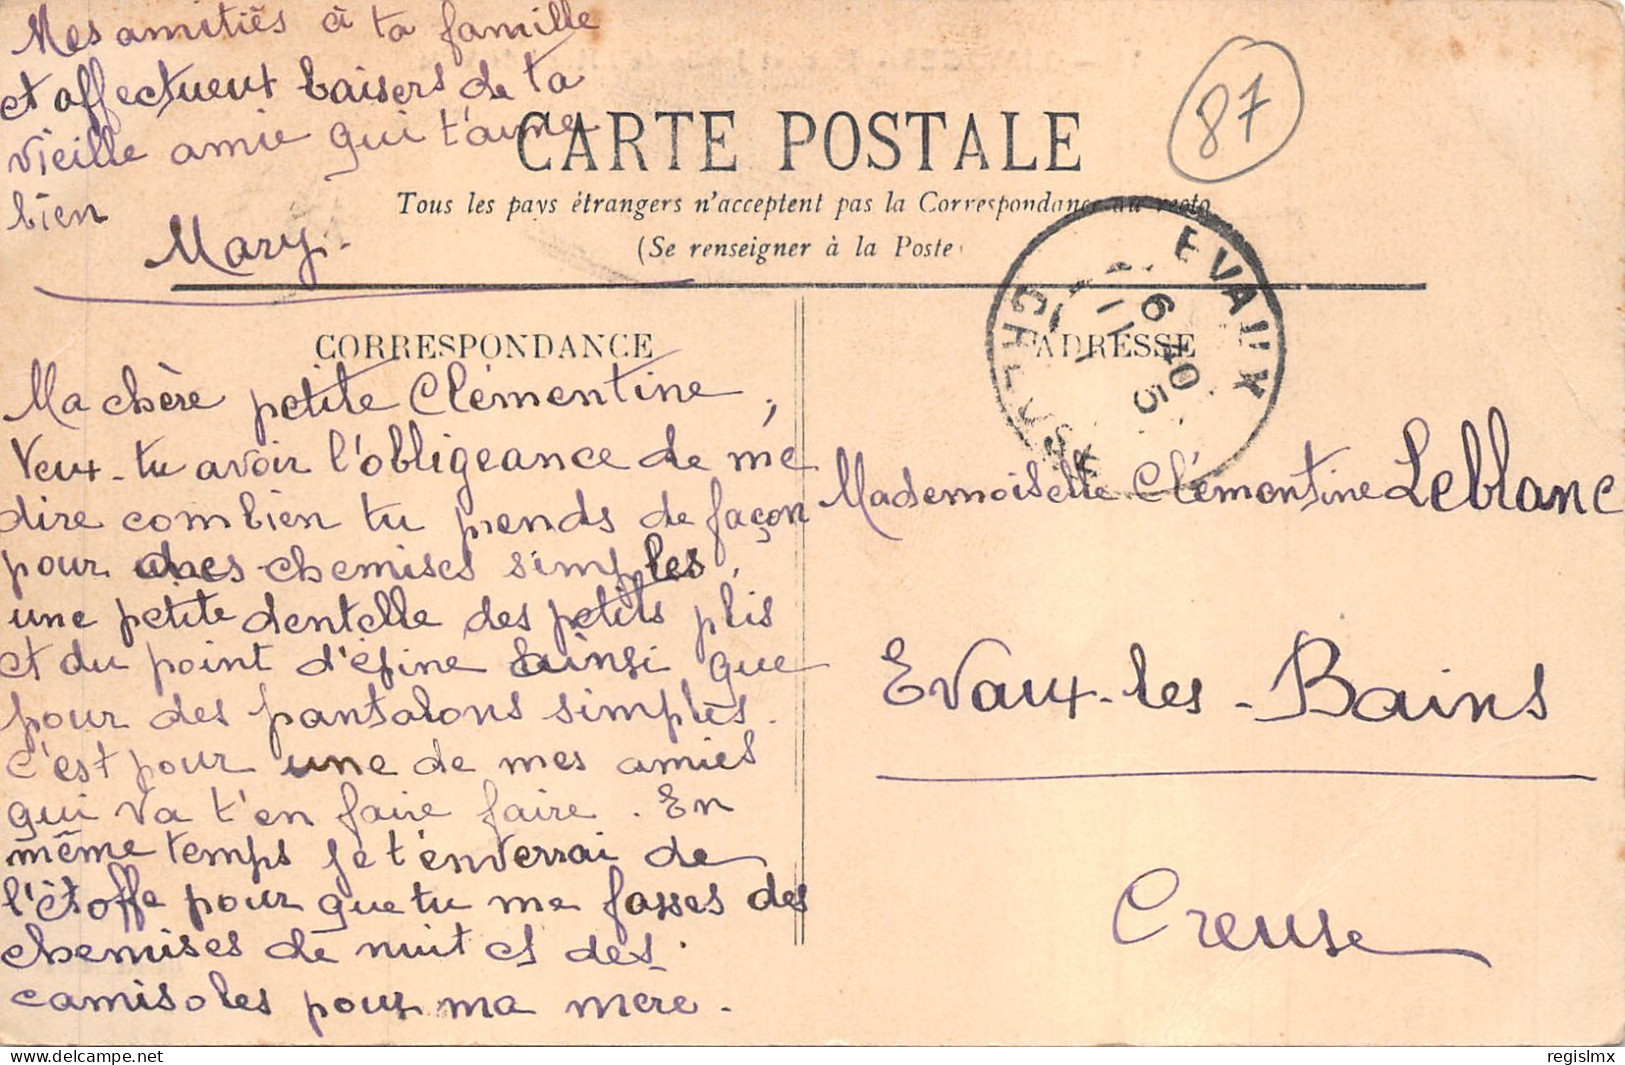 Mes amitiés à ta famille
et affectueux baisers de ta
vieille amie qui t'aime
bien
Mary.
87
CARTE POSTALE
Tous les pays étrangers n'acceptent pas la Correspondance au recto
(Se renseigner à la Poste
EVAUX
CREUSE
6 40
11
5
CORRESPONDANCE
ADRESSE
Ma chère petite Clémentine,
Veux-tu avoir l'obligeance de me
dire combien tu prends de façon
pour des chemises simples,
une petite dentelle des petits plis
et du point d'épine ainsi que
pour des pantalons simples.
c'est pour une de mes amies
qui va t'en faire faire. En
même temps je t'enverrai de
l'étoffe pour que tu me fasses des
chemises de nuit et des
camisoles pour ma mère.
Mademoiselle Clémentine Leblanc
Evaux-les-Bains
Creuse
delcampe.net
regislmx